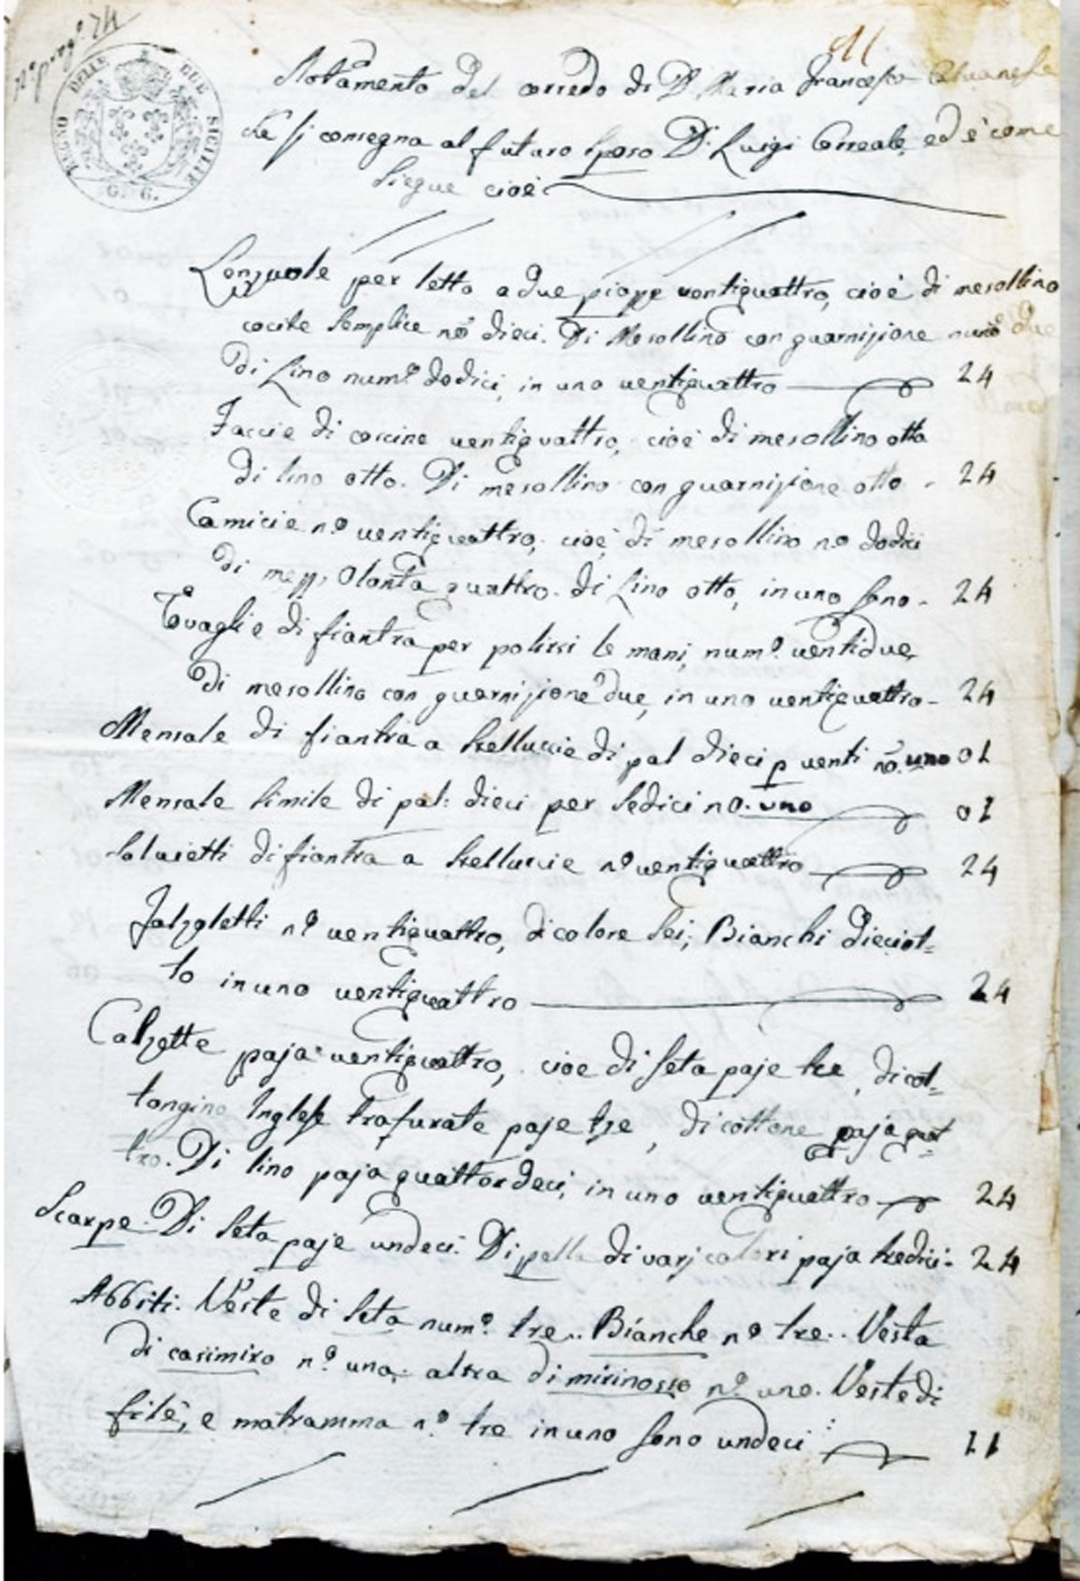 N° prog.° 24
REGNO DELLE DUE SICILIE
G. 6.
Notamento del corredo di D. Maria Francesca
che si consegna al futuro sposo D. Luigi Correale, ed è come
siegue cioè
Lenzuole per letto a due piazze ventiquattro, cioè di mesollino
cocite semplice n° dieci. Di Mesollino con guarnizione num° due
Di Lino num.° dodici, in uno ventiquattro 24
Faccie di coscine ventiquattro, cioè di mesollino otto
di lino otto. Di mesollino con guarnizione otto - 24
Camicie n.° ventiquattro, cioè di mesollino n.° dodici
Di mezz. Olanta quattro. di Lino otto, in uno sono - 24
Tovaglie di fiantra per polirsi le mani, num.° ventidue
Di mesollino con guarnizione due, in uno ventiquattro - 24
Mensale di fiantra a stelluccie di pal dieci p venti n.° uno 01
Mensale simile di pal: dieci per sedici no. uno 01
Salvietti di fiantra a stelluccie n.° ventiquattro 24
Falzoletti n.° ventiquattro, di colore sei; Bianchi dieciot=
to in uno ventiquattro 24
Calzette paja ventiquattro, cioe di seta paje tre, di cot=
tongino Inglese trafurate paje tre, di cottone paja quat=
tro. Di lino paja quattordeci, in uno ventiquattro 24
Scarpe. Di seta paje undeci. Di pelle di varj colori paja tredici - 24
Abbiti. Veste di seta num.° tre.. Bianche n.° tre.. Vesta
di casimiro n.° una; altra di mirinosso n.° uno. Veste di
filè, e matramma n.° tre in uno sono undeci 11